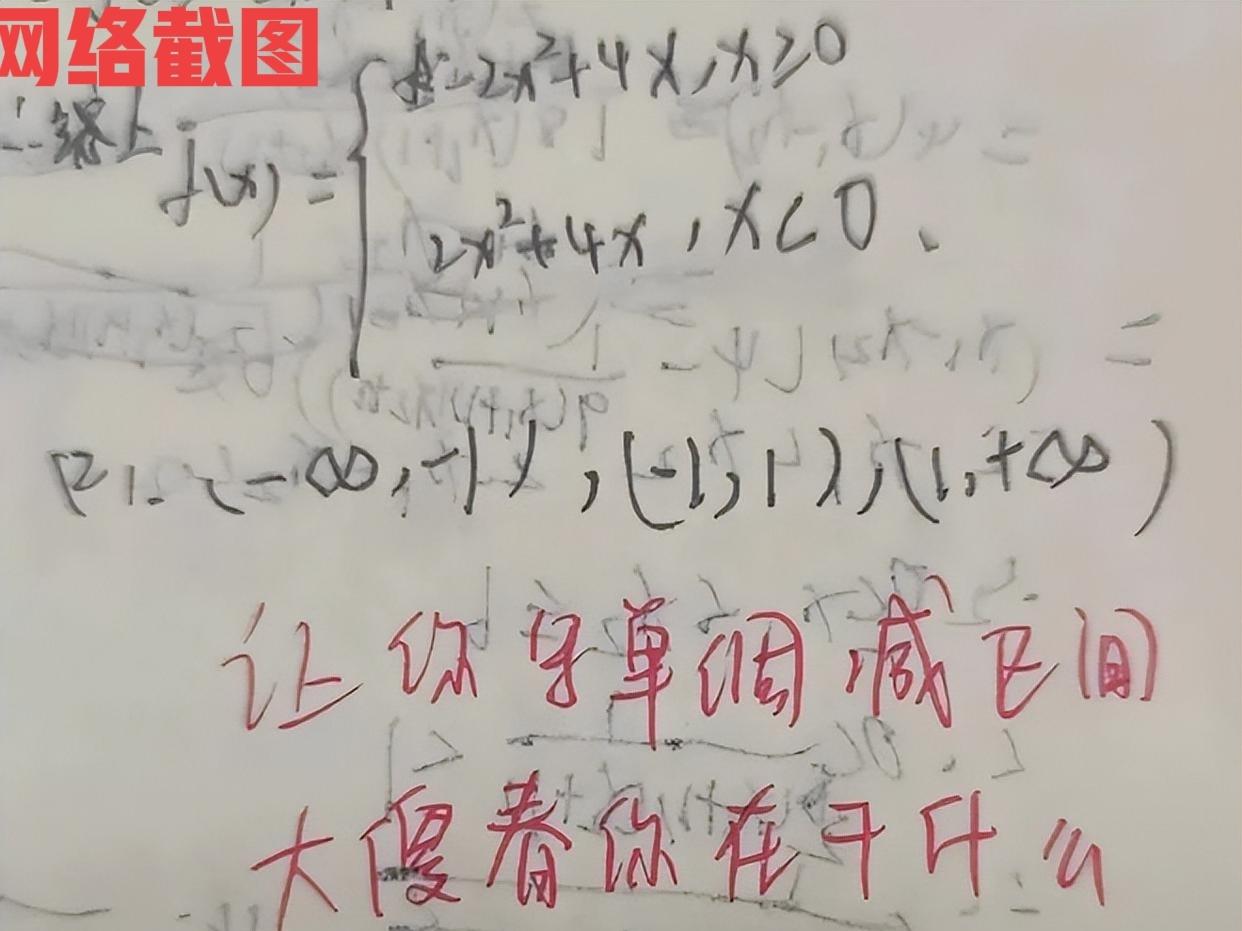 网络截图
∴综上 f(x) = { -2x²+4x, x≥0
2x²+4x, x<0.
(2). (-∞, -1), (-1, 1), (1, +∞)
让你写单调减区间
大傻春你在干什么